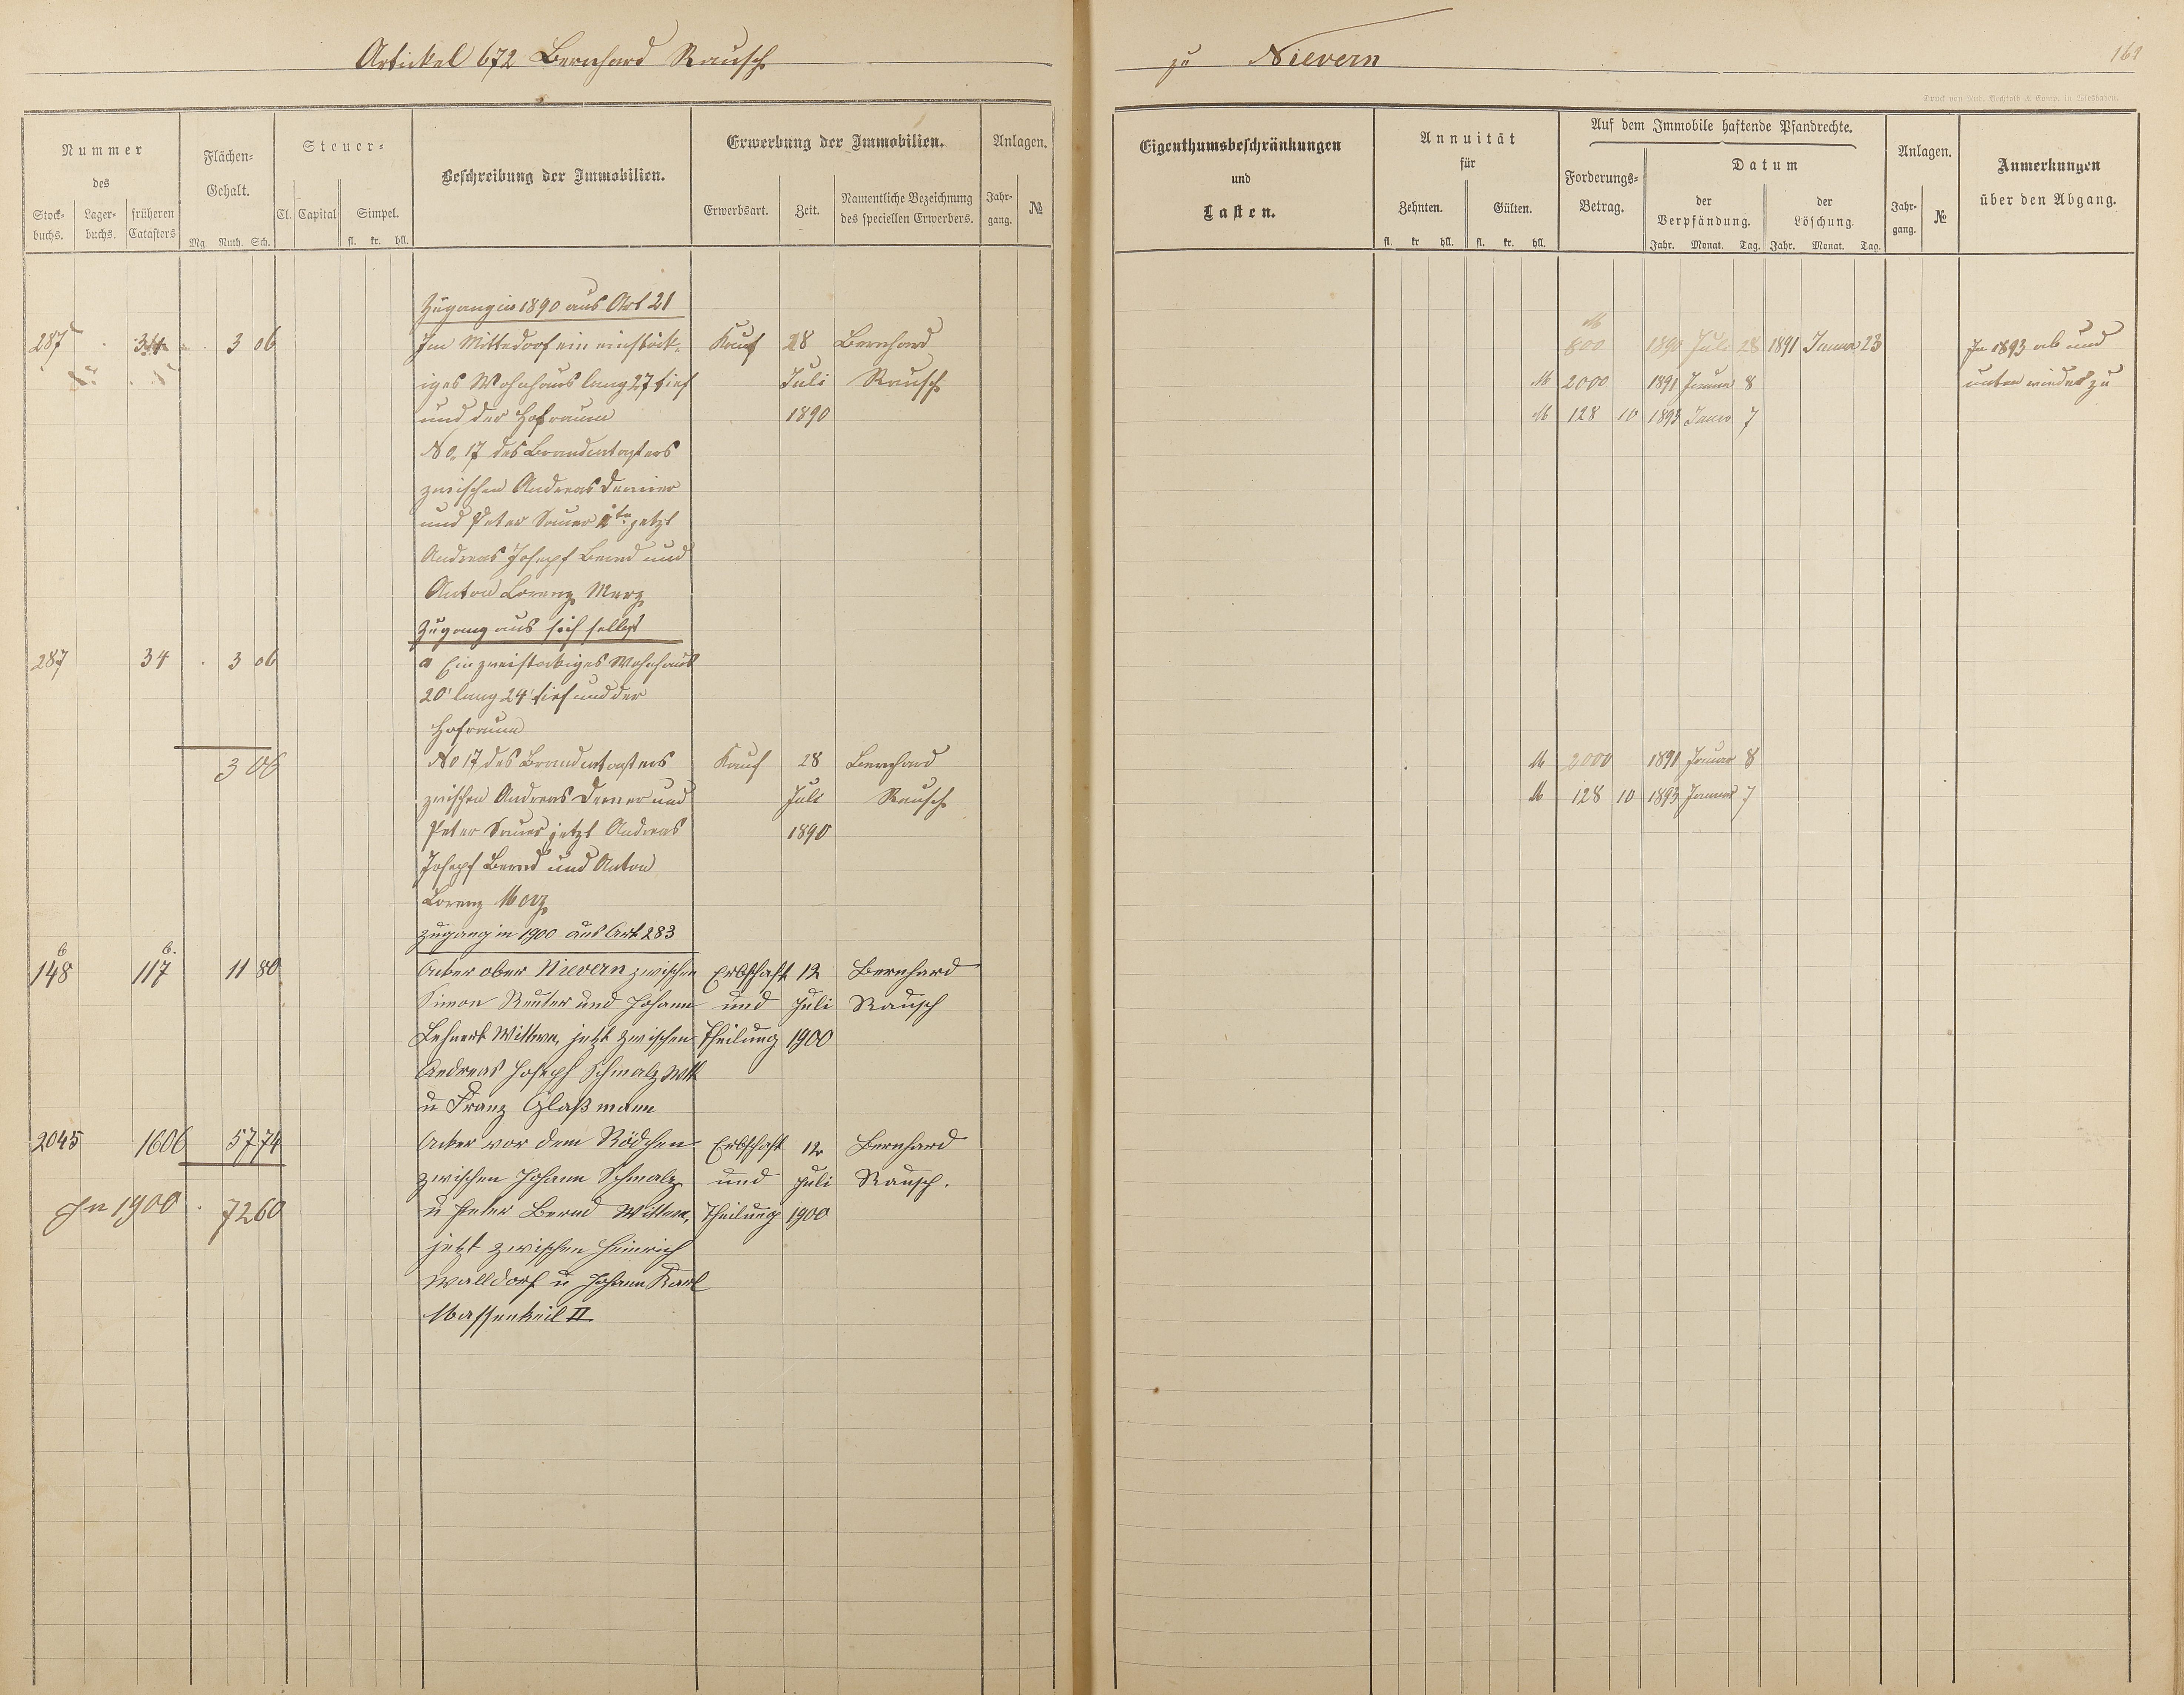 Artickel 672 Bernhard Rausch
zu Nievern
161
Druck von Rud. Bechtold & Comp. in Wiesbaden.
Nummer
des
Stock-
buchs.
Lager-
buchs.
früheren
Catasters
Flächen-
Gehalt.
Mg Ruth. Sch.
Steuer-
Cl. Capital Simpel.
fl. kr. hll.
Beschreibung der Immobilien.
Erwerbung der Immobilien.
Erwerbsart. Zeit. Namentliche Bezeichnung
des speciellen Erwerbers.
Anlagen.
Jahr-
gang.
№
Eigenthumsbeschränkungen
und
Lasten.
Annuität
für
Zehnten. Gülten.
fl. kr hll. fl. kr. hll.
Auf dem Immobile haftende Pfandrechte.
Forderungs-
Betrag.
Datum
der
Verpfändung.
der
Löschung.
Jahr. Monat. Tag. Jahr. Monat. Tag.
Anlagen.
Jahr-
gang.
№
Anmerkungen
über den Abgang.
Zugang in 1890 aus Art 21
287 34 3 06 Im Mitteldorf ein einstöck- Kauf 28 Bernhard M 800 1890 Juli 28 1891 Januar 23 In 1893 ab und
iges Wohnhaus lang 27 tief Juli Rausch M 2000 1891 Januar 8 unten wieder zu
und der Hofraum 1890 M 128 10 1893 Januar 7
No. 17 des Brandcatasters
zwischen Andreas
und Peter Sauer 2ter jetzt
Andreas Josepf Bernd und
Anton Lorenz Merz
Zugang aus sich selbst
287 34 3 06 a Ein zweistockiges Wohnhaus
20' lang 24' tief und der
Hofraum
3 06 No 17 des Brandcatasters Kauf 28 Bernhard M 2000 1891 Januar 8
zwischen Andreas und Juli Rausch M 128 10 1893 Januar 7
Peter Sauer jetzt Andreas 1890
Josepf Bernd und Anton
Lorenz Merz
Zugang in 1900 aus Art 283
148 6 117 6. 11 80 Acker ober Nievern zwischen Erbschaft 12 Bernhard
Simon Reuter und Johann und Juli Rausch
Lehnert Wittwe, jetzt zwischen Theilung 1900
Andreas Joseph Schmalz Wtt
u Franz Glaßmann
2045 1606 57 74 Acker vor dem Rödchen Erbschaft 12 Bernhard
zwischen Johann Schmalz und Juli Rausch.
In 1900 . 72 60 u Peter Bernd Wittwe, Theilung 1900
jetzt zwischen Heinrich
Walldorf u Johann Karl
Massenkeil II